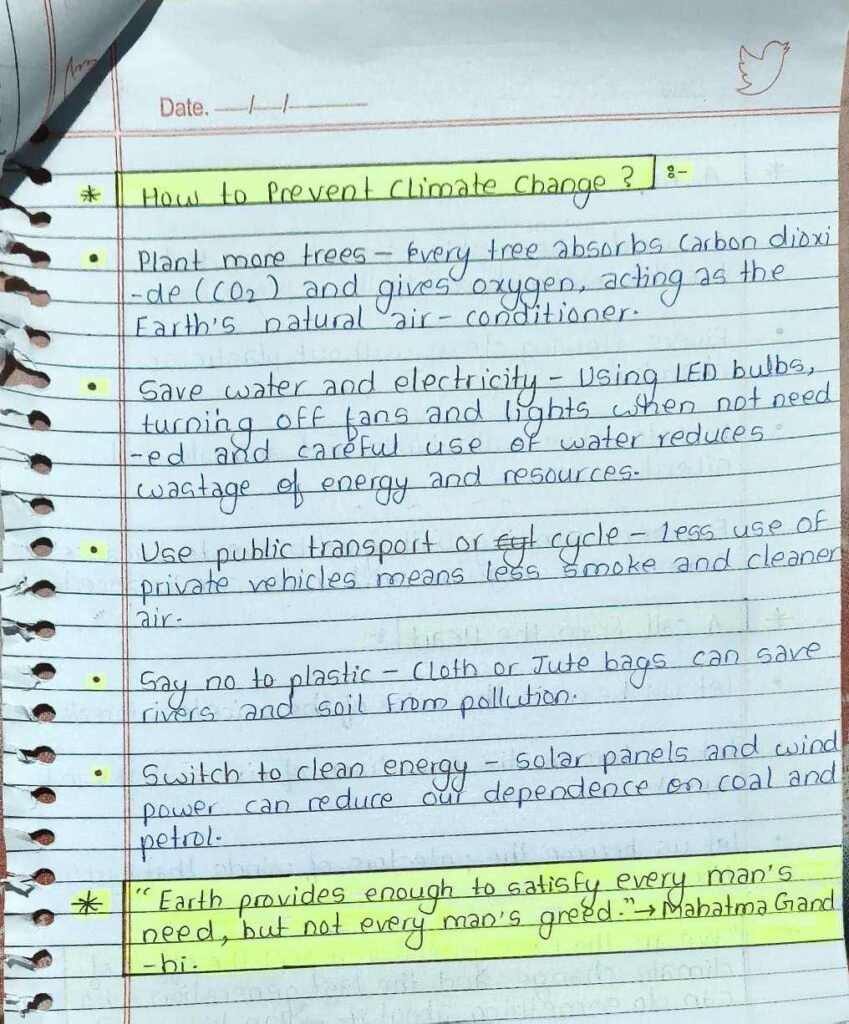 Date. __/__/____
* How to Prevent Climate Change ? :-
• Plant more trees – Every tree absorbs Carbon dioxi
-de (CO₂) and gives oxygen, acting as the
Earth's natural air-conditioner.
• Save water and electricity – Using LED bulbs,
turning off fans and lights when not need
-ed and careful use of water reduces
wastage of energy and resources.
• Use public transport or cycle – Less use of
private vehicles means less smoke and cleaner
air.
• Say no to plastic – Cloth or Jute bags can save
rivers and soil from pollution.
• Switch to clean energy – Solar panels and wind
power can reduce our dependence on coal and
petrol.
* "Earth provides enough to satisfy every man's
need, but not every man's greed." → Mahatma Gand
-hi.